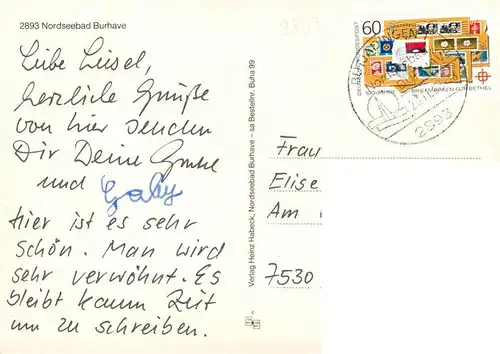 2893 Nordseebad Burhave
2893
Liebe Liesel,
herzliche Grüße
von hier senden
Dir Deine
und Gaby
Hier ist es sehr
schön. Man wird
sehr verwöhnt. Es
bleibt kaum Zeit
um zu schreiben.
Verlag Heinz Habeck, Nordseebad Burhave – sa Bestellnr. Buha 99
60
DEUTSCHE BUNDESPOST
100 JAHRE BRIEFMARKEN FÜR BETHEL
2893
Frau
Elise
Am
7530